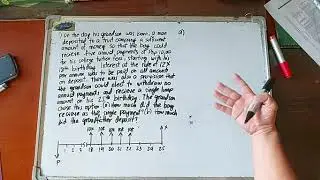 1. On the day his grandson was born, a man
deposited to a trust company a sufficient
amount of money so that the boy could
receive five annual payments of P10,000
for his college tuition fees, starting with his
18th birthday. Interest at the rate of 12%
per annum was to be paid on all amount
on deposit. There was also a provision that
the grandson could elect to withdraw no
annual payments and receive a single lump
amount on his 25th birthday. The grandson
chose this option. (a) How much did the boy
receive as the single payment? (b) How much
did the grandfather deposit?
a)
10k 10k 10k 10k 10k
1 2 3 18 19 20 21 22 23 24 25
P